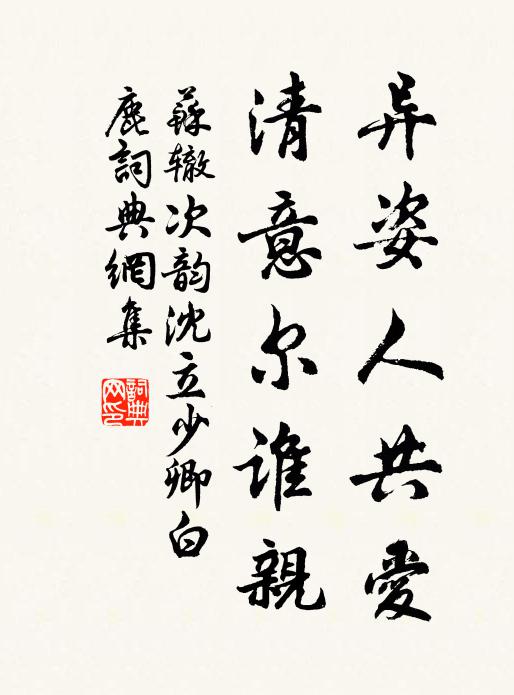 异姿人共愛
清意尔谁親
蘇辙次韵沈立少卿白
鹿詞典網集
詞典网印